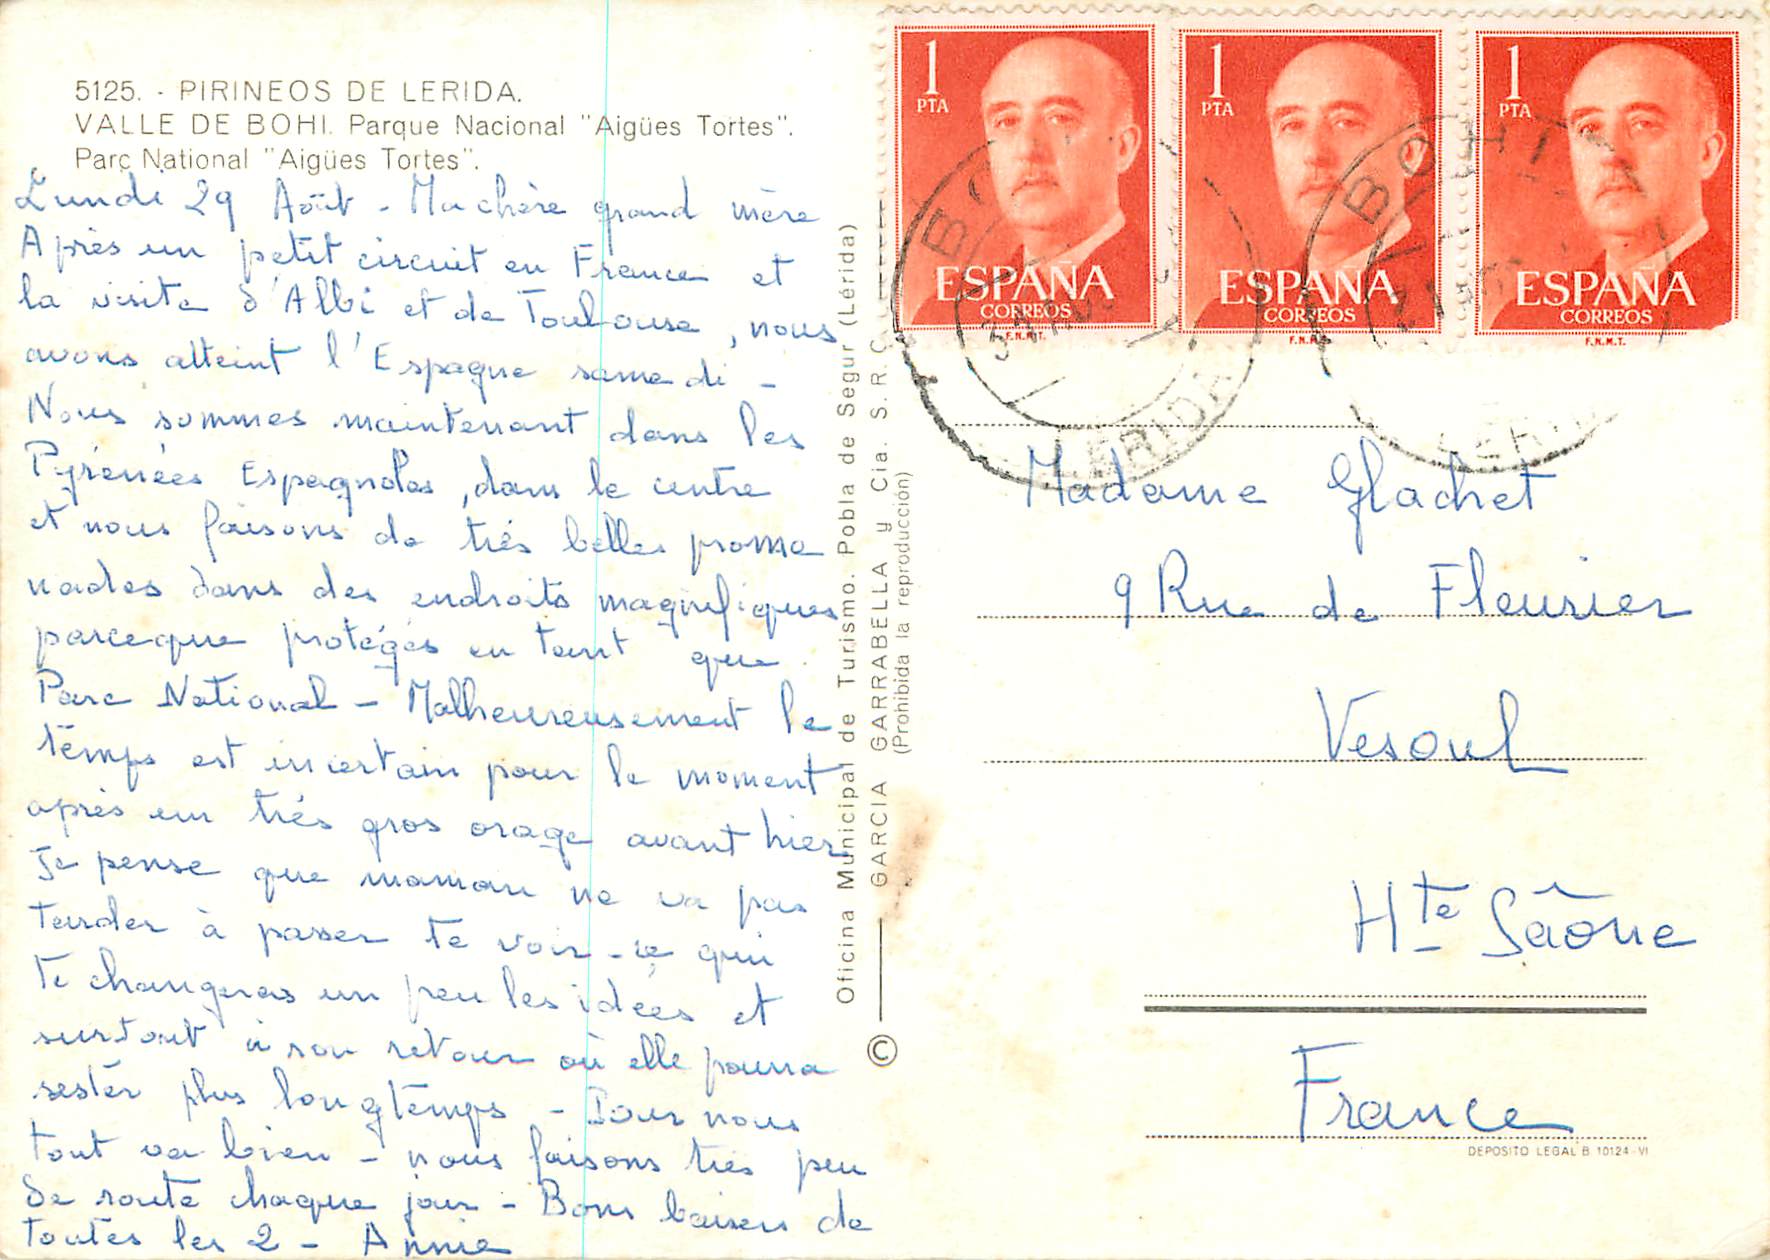 5125. - PIRINEOS DE LERIDA.
VALLE DE BOHI. Parque Nacional "Aigües Tortes".
Parc National "Aigües Tortes".
Lundi 29 Août - Ma chère grand mère
Après un petit circuit en France et
la visite d'Albi et de Toulouse, nous
avons atteint l'Espagne samedi -
Nous sommes maintenant dans les
Pyrénées Espagnoles, dans le centre
et nous faisons de très belles prome
nades dans des endroits magnifiques
parceque protégés en tant que
Parc National - Malheureusement le
temps est incertain pour le moment
après un très gros orage avant hier
Je pense que maman ne va pas
tarder à passer te voir - ce qui
te changeras un peu les idées et
surtout à son retour où elle pourra
rester plus longtemps - Pour nous
tout va bien - nous faisons très peu
de route chaque jour - Bons baisers de
toutes les 2 - Annie
Oficina Municipal de Turismo. Pobla de Segur (Lérida)
© GARCIA GARRABELLA y Cia. S. R. C.
(Prohibida la reproducción)
1 PTA
ESPAÑA
CORREOS
F.N.M.T.
1 PTA
ESPAÑA
CORREOS
1 PTA
ESPAÑA
CORREOS
F.N.M.T.
BOHI
LERIDA
BOHI
Madame Glachet
9 Rue de Fleurier
Vesoul
Hte Sâone
France
DEPOSITO LEGAL B. 10124-VI